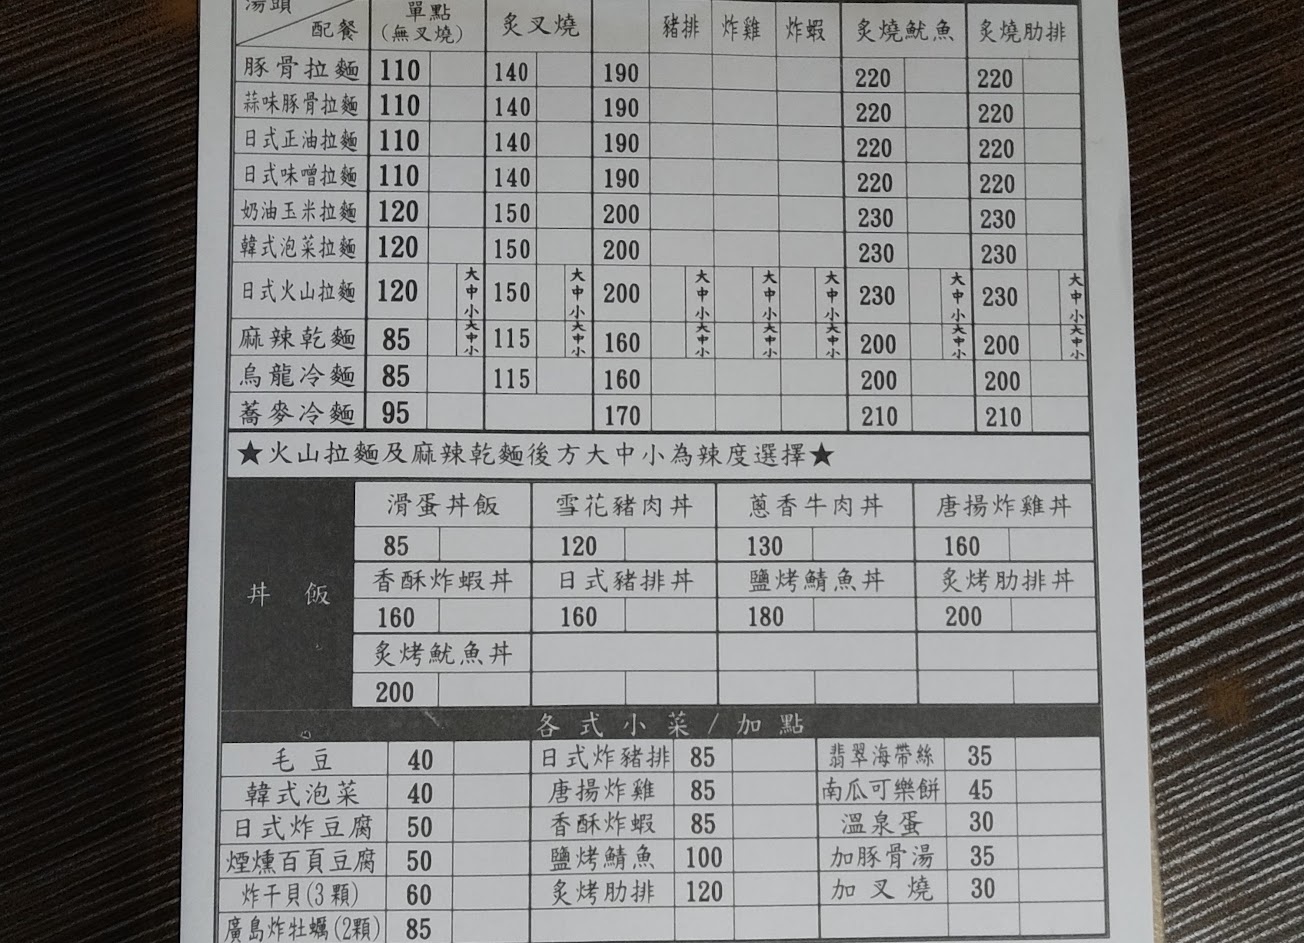 湯頭
配餐 單點 炙叉燒 豬排 炸雞 炸蝦 炙燒魷魚 炙燒肋排
(無叉燒)
豚骨拉麵 110 140 190 220 220
蒜味豚骨拉麵 110 140 190 220 220
日式正油拉麵 110 140 190 220 220
日式味噌拉麵 110 140 190 220 220
奶油玉米拉麵 120 150 200 230 230
韓式泡菜拉麵 120 150 200 230 230
日式火山拉麵 120 大中小 150 大中小 200 大中小 大中小 大中小 230 大中小 230 大中小
麻辣乾麵 85 大中小 115 大中小 160 大中小 大中小 大中小 200 大中小 200 大中小
烏龍冷麵 85 115 160 200 200
蕎麥冷麵 95 170 210 210
★火山拉麵及麻辣乾麵後方大中小為辣度選擇★
丼飯
滑蛋丼飯 雪花豬肉丼 蔥香牛肉丼 唐揚炸雞丼
85 120 130 160
香酥炸蝦丼 日式豬排丼 鹽烤鯖魚丼 炙烤肋排丼
160 160 180 200
炙烤魷魚丼
200
各式小菜/加點
毛豆 40 日式炸豬排 85 翡翠海帶絲 35
韓式泡菜 40 唐揚炸雞 85 南瓜可樂餅 45
日式炸豆腐 50 香酥炸蝦 85 溫泉蛋 30
煙燻百頁豆腐 50 鹽烤鯖魚 100 加豚骨湯 35
炸干貝(3顆) 60 炙烤肋排 120 加叉燒 30
廣島炸牡蠣(2顆) 85